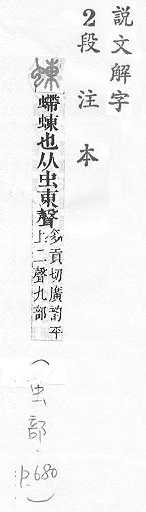 説文解字
2段注本
蝀
螮蝀也从虫東聲
多貢切廣韵平
上二聲九部
(虫部.p.680)